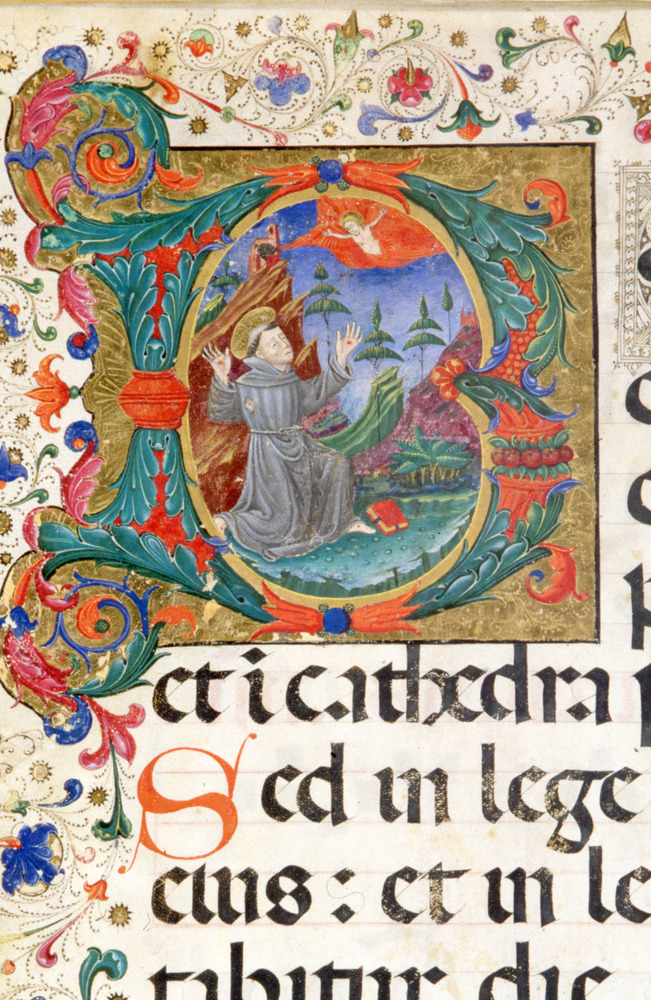 B
et i cathedra p
Sed in lege
eius: et in le
tabitur die